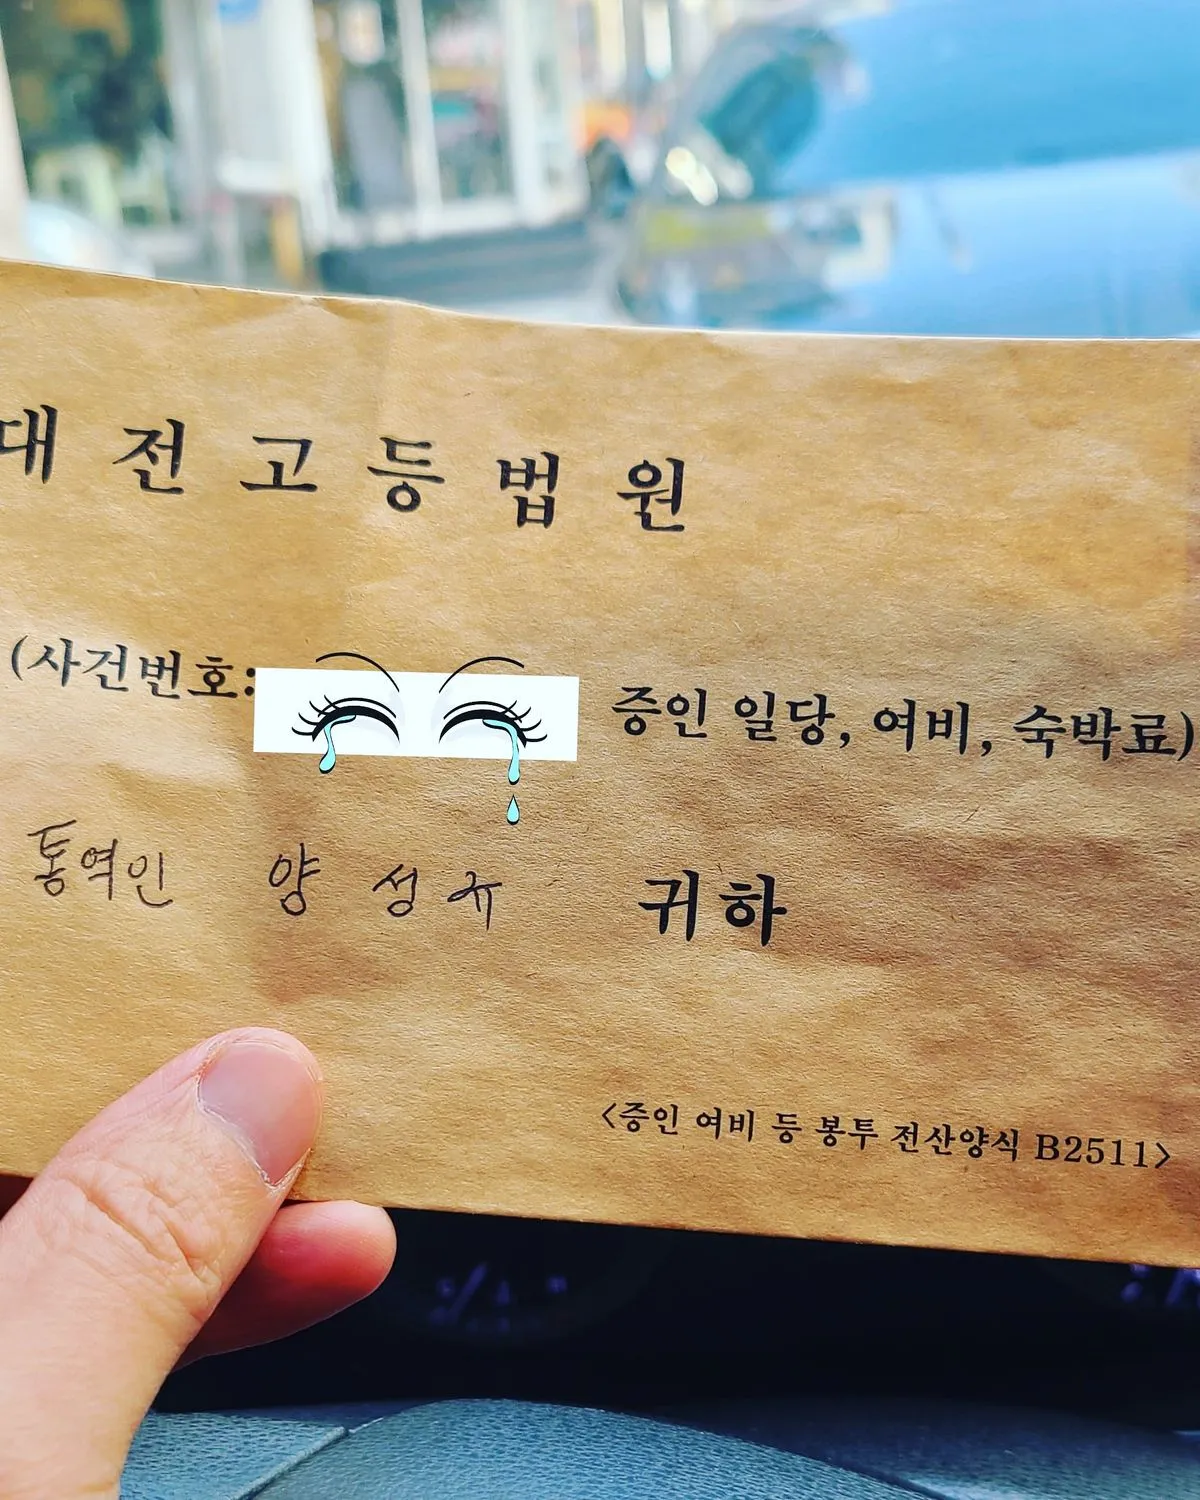 대전고등법원
(사건번호: 증인 일당, 여비, 숙박료)
통역인 양성규 귀하
<증인 여비 등 봉투 전산양식 B2511>